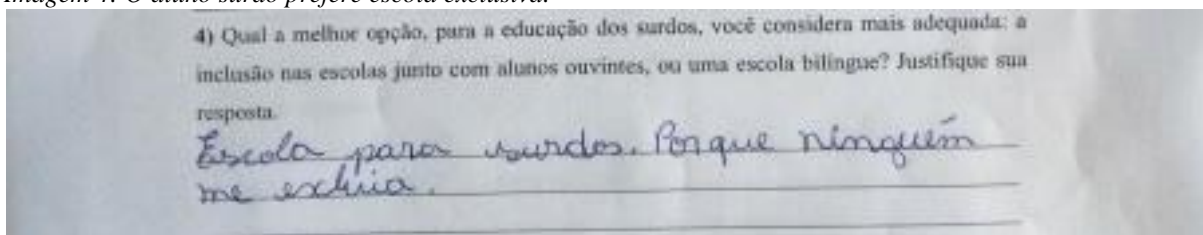 Imagem 4: O aluno surdo prefere escola exclusiva.
4) Qual a melhor opção, para a educação dos surdos, você considera mais adequada: a
inclusão nas escolas junto com alunos ouvintes, ou uma escola bilíngue? Justifique sua
resposta.
Escola para surdos. Porque ninguém
me excluia.